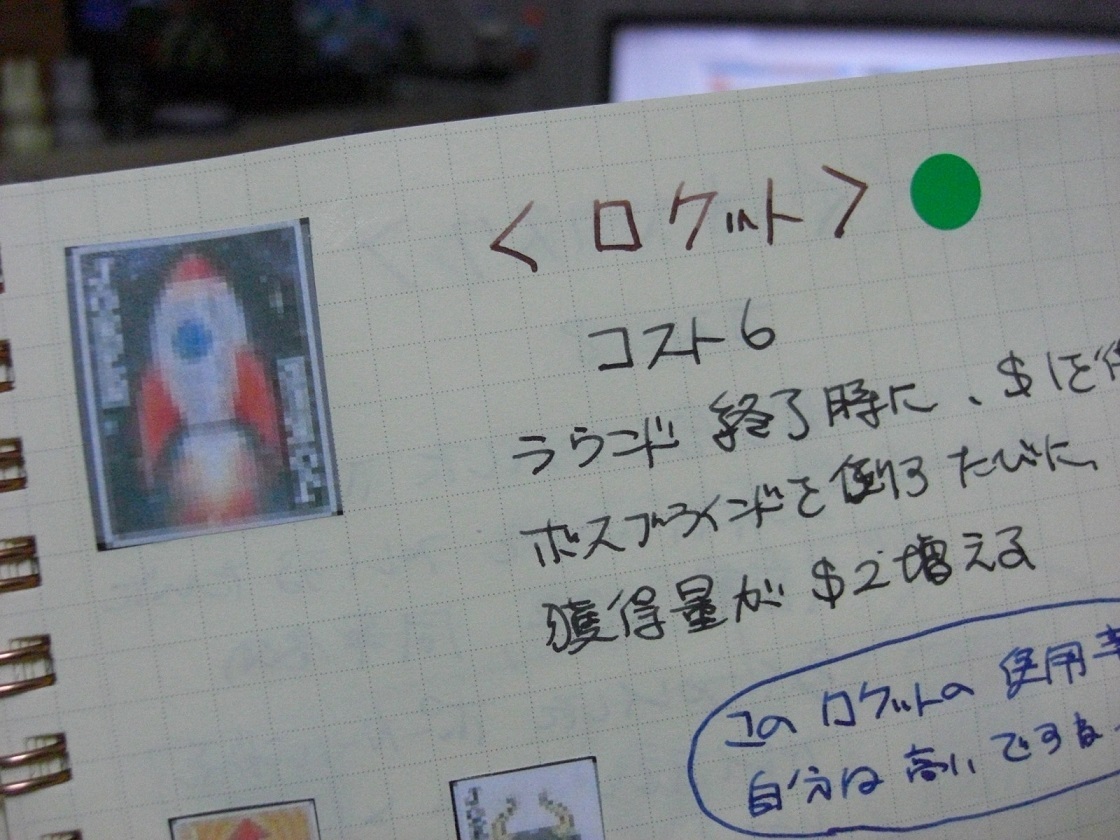 ＜ロケット＞
コスト6
ラウンド終了時に、$1を
ボスブラインドを倒すたびに、
獲得量が$2増える
このロケットの使用率
自分は高いですね